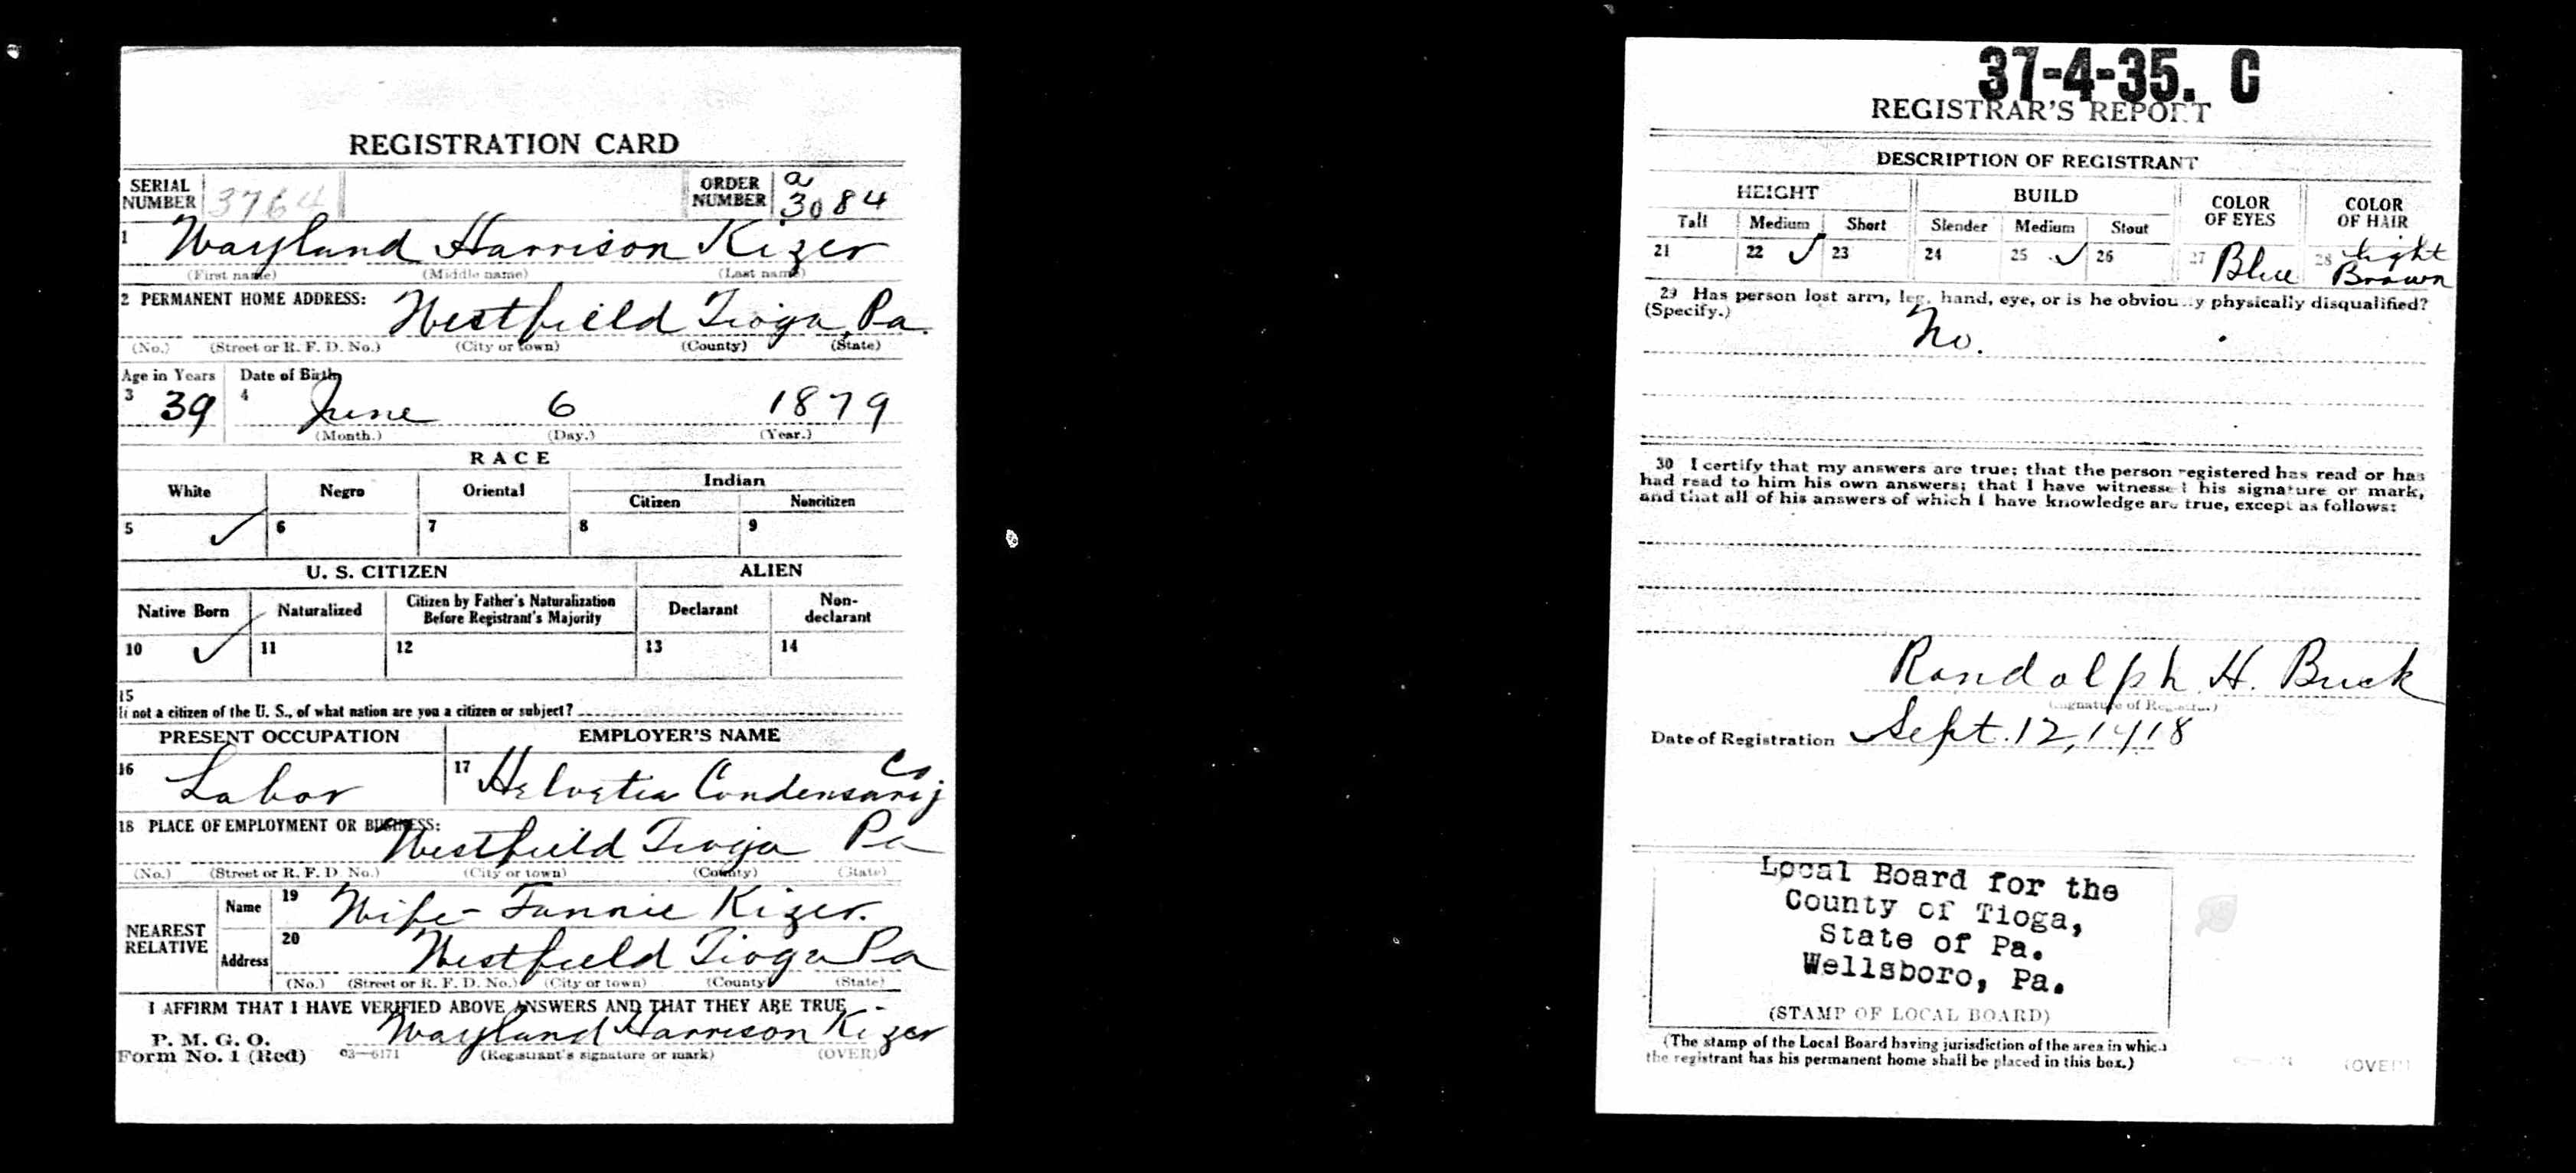 REGISTRATION CARD
SERIAL NUMBER 3764 ORDER NUMBER a 3084
1 Wayland Harrison Kizer
(First name) (Middle name) (Last name)
2 PERMANENT HOME ADDRESS: Westfield Tioga Pa.
(No.) (Street or R. F. D. No.) (City or town) (County) (State)
Age in Years Date of Birth
3 39 4 June 6 1879
(Month.) (Day.) (Year.)
RACE
White Negro Oriental Indian
Citizen Noncitizen
5 ✓ 6 7 8 9
U. S. CITIZEN ALIEN
Native Born Naturalized Citizen by Father's Naturalization Before Registrant's Majority Declarant Non-declarant
10 ✓ 11 12 13 14
15
If not a citizen of the U. S., of what nation are you a citizen or subject?
PRESENT OCCUPATION EMPLOYER'S NAME
16 Labor 17 Helvetia Condensarij Co
18 PLACE OF EMPLOYMENT OR BUSINESS:
Westfield Tioga Pa
(No.) (Street or R. F. D. No.) (City or town) (County) (State)
NEAREST RELATIVE
Name 19 Wife - Fannie Kizer.
Address 20 Westfield Tioga Pa
(No.) (Street or R. F. D. No.) (City or town) (County) (State)
I AFFIRM THAT I HAVE VERIFIED ABOVE ANSWERS AND THAT THEY ARE TRUE
P. M. G. O.
Form No. 1 (Red) 03—6171 Wayland Harrison Kizer
(Registrant's signature or mark) (OVER)
37-4-35. C
REGISTRAR'S REPORT
DESCRIPTION OF REGISTRANT
HEIGHT BUILD COLOR OF EYES COLOR OF HAIR
Tall Medium Short Slender Medium Stout
21 22 ✓ 23 24 25 ✓ 26 27 Blue 28 Light Brown
29 Has person lost arm, leg, hand, eye, or is he obviously physically disqualified?
(Specify.) No.
30 I certify that my answers are true; that the person registered has read or has
had read to him his own answers; that I have witnessed his signature or mark,
and that all of his answers of which I have knowledge are true, except as follows:
Randolph H. Buck
(Signature of Registrar)
Date of Registration Sept. 12, 1918
Local Board for the
County of Tioga,
State of Pa.
Wellsboro, Pa.
(STAMP OF LOCAL BOARD)
(The stamp of the Local Board having jurisdiction of the area in which
the registrant has his permanent home shall be placed in this box.)
(OVER)